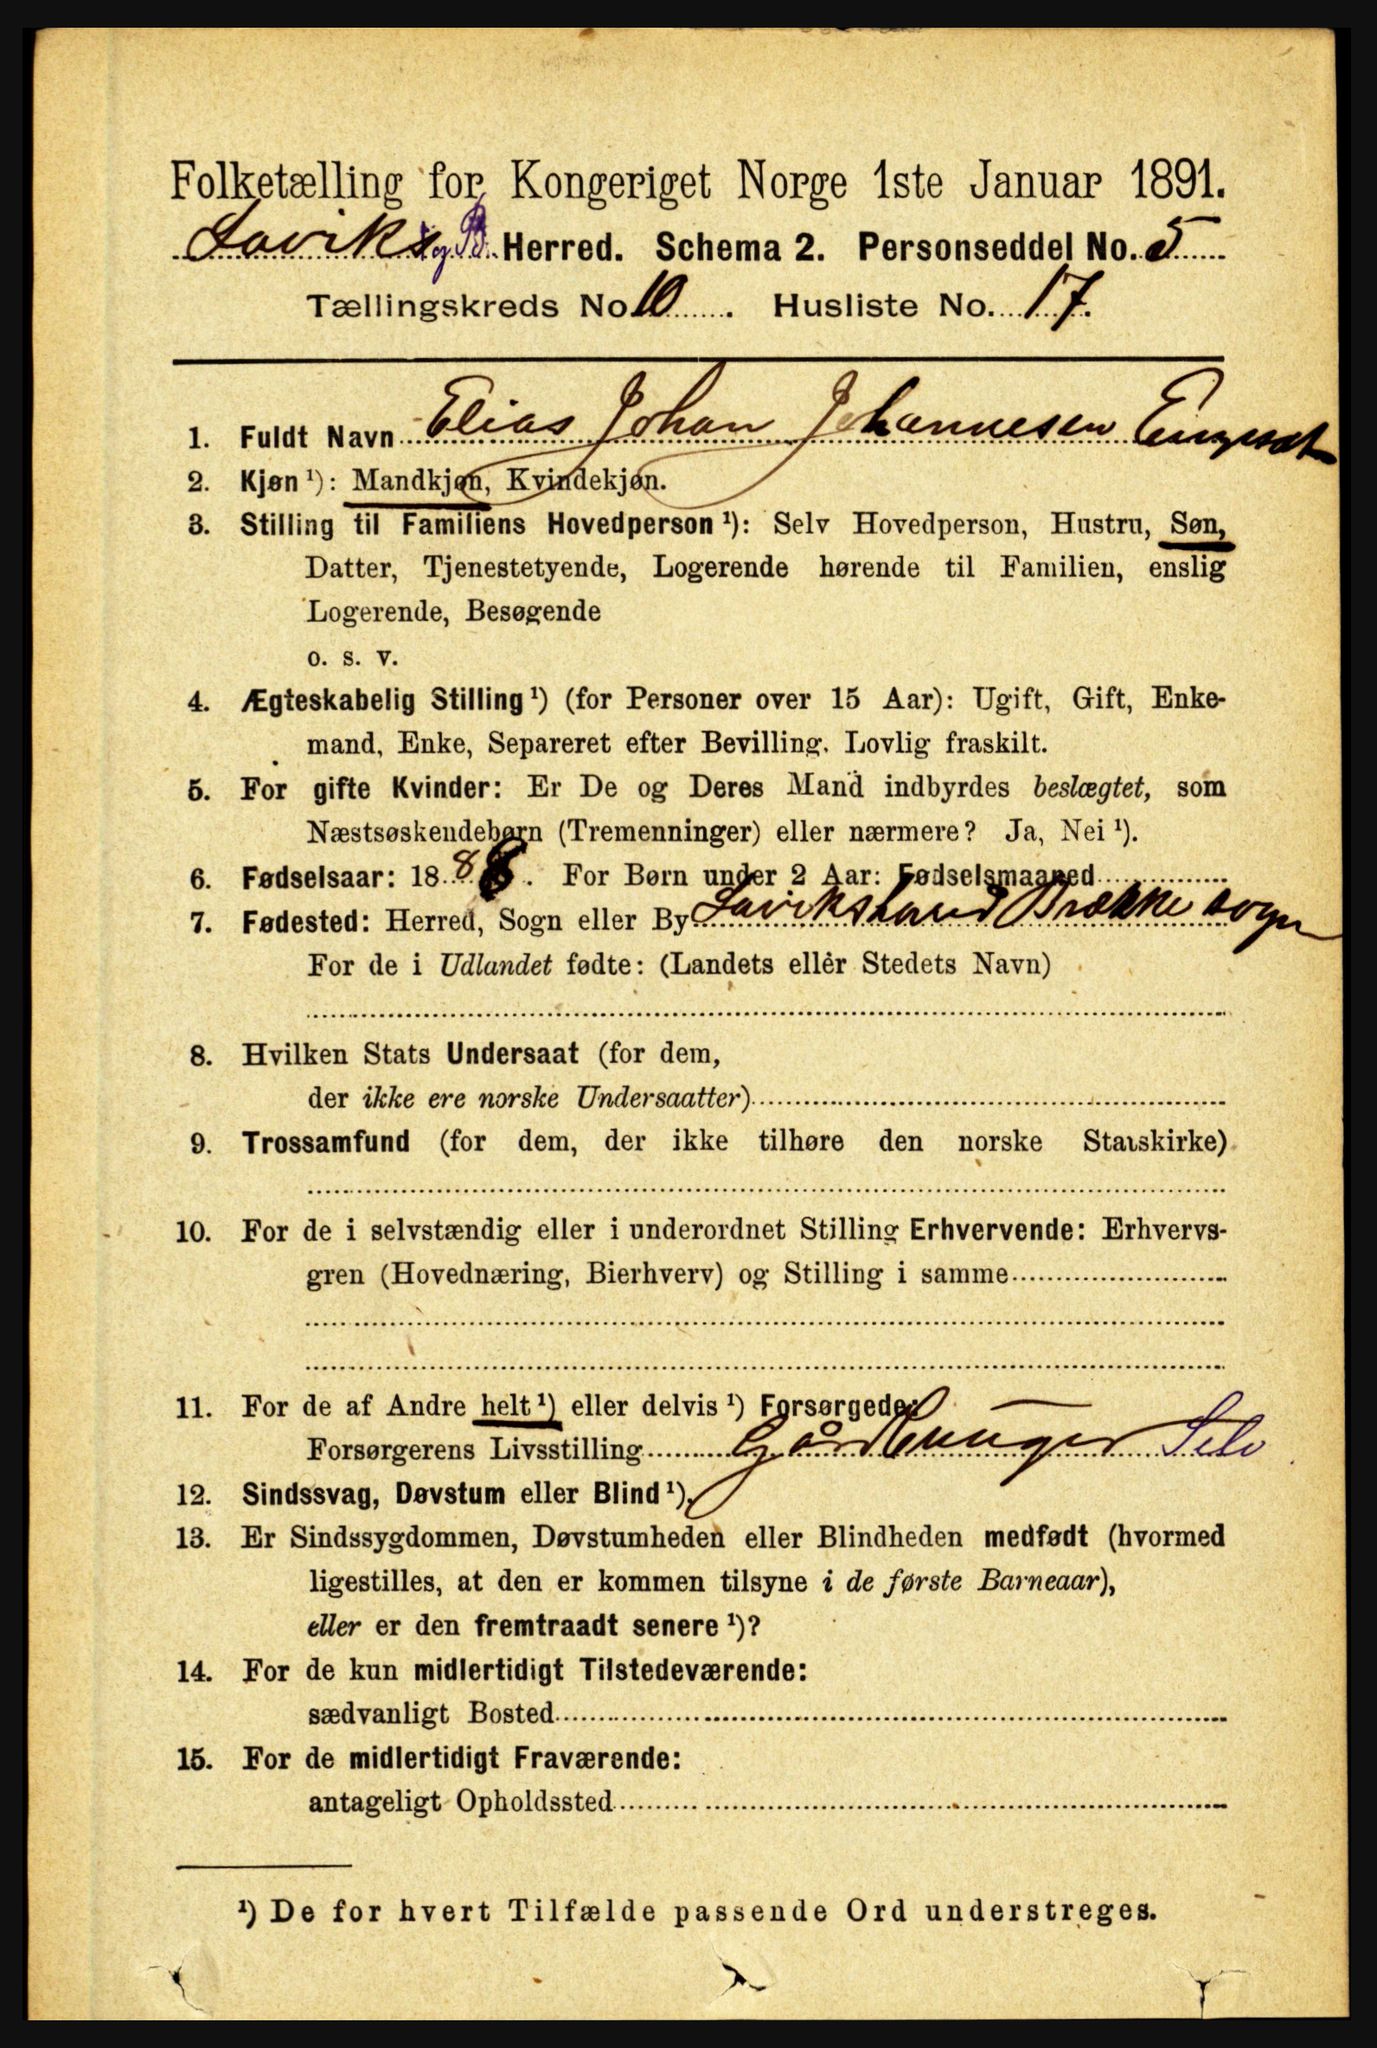 Folketælling for Kongeriget Norge 1ste Januar 1891.
Laviks og B. Herred. Schema 2. Personseddel No. 5
Tællingskreds No 10. Husliste No. 17.
1. Fuldt Navn Elias Johan Johannesen
2. Kjøn ¹): Mandkjøn, Kvindekjøn.
3. Stilling til Familiens Hovedperson ¹): Selv Hovedperson, Hustru, Søn,
Datter, Tjenestetyende, Logerende hørende til Familien, enslig
Logerende, Besøgende
o. s. v.
4. Ægteskabelig Stilling ¹) (for Personer over 15 Aar): Ugift, Gift, Enke-
mand, Enke, Separeret efter Bevilling. Lovlig fraskilt.
5. For gifte Kvinder: Er De og Deres Mand indbyrdes beslægtet, som
Næstsøskendebørn (Tremenninger) eller nærmere? Ja, Nei ¹).
6. Fødselsaar: 1888. For Børn under 2 Aar: Fødselsmaaned
7. Fødested: Herred, Sogn eller By Laviksherred Brække sogn
For de i Udlandet fødte: (Landets eller Stedets Navn)
8. Hvilken Stats Undersaat (for dem,
der ikke ere norske Undersaatter)
9. Trossamfund (for dem, der ikke tilhøre den norske Statskirke)
10. For de i selvstændig eller i underordnet Stilling Erhvervende: Erhvervs-
gren (Hovednæring, Bierhverv) og Stilling i samme
11. For de af Andre helt ¹) eller delvis ¹) Forsørgede:
Forsørgerens Livsstilling Gårdbruger Selv
12. Sindssvag, Døvstum eller Blind ¹).
13. Er Sindssygdommen, Døvstumheden eller Blindheden medfødt (hvormed
ligestilles, at den er kommen tilsyne i de første Barneaar),
eller er den fremtraadt senere ¹)?
14. For de kun midlertidigt Tilstedeværende:
sædvanligt Bosted
15. For de midlertidigt Fraværende:
antageligt Opholdssted
¹) De for hvert Tilfælde passende Ord understreges.